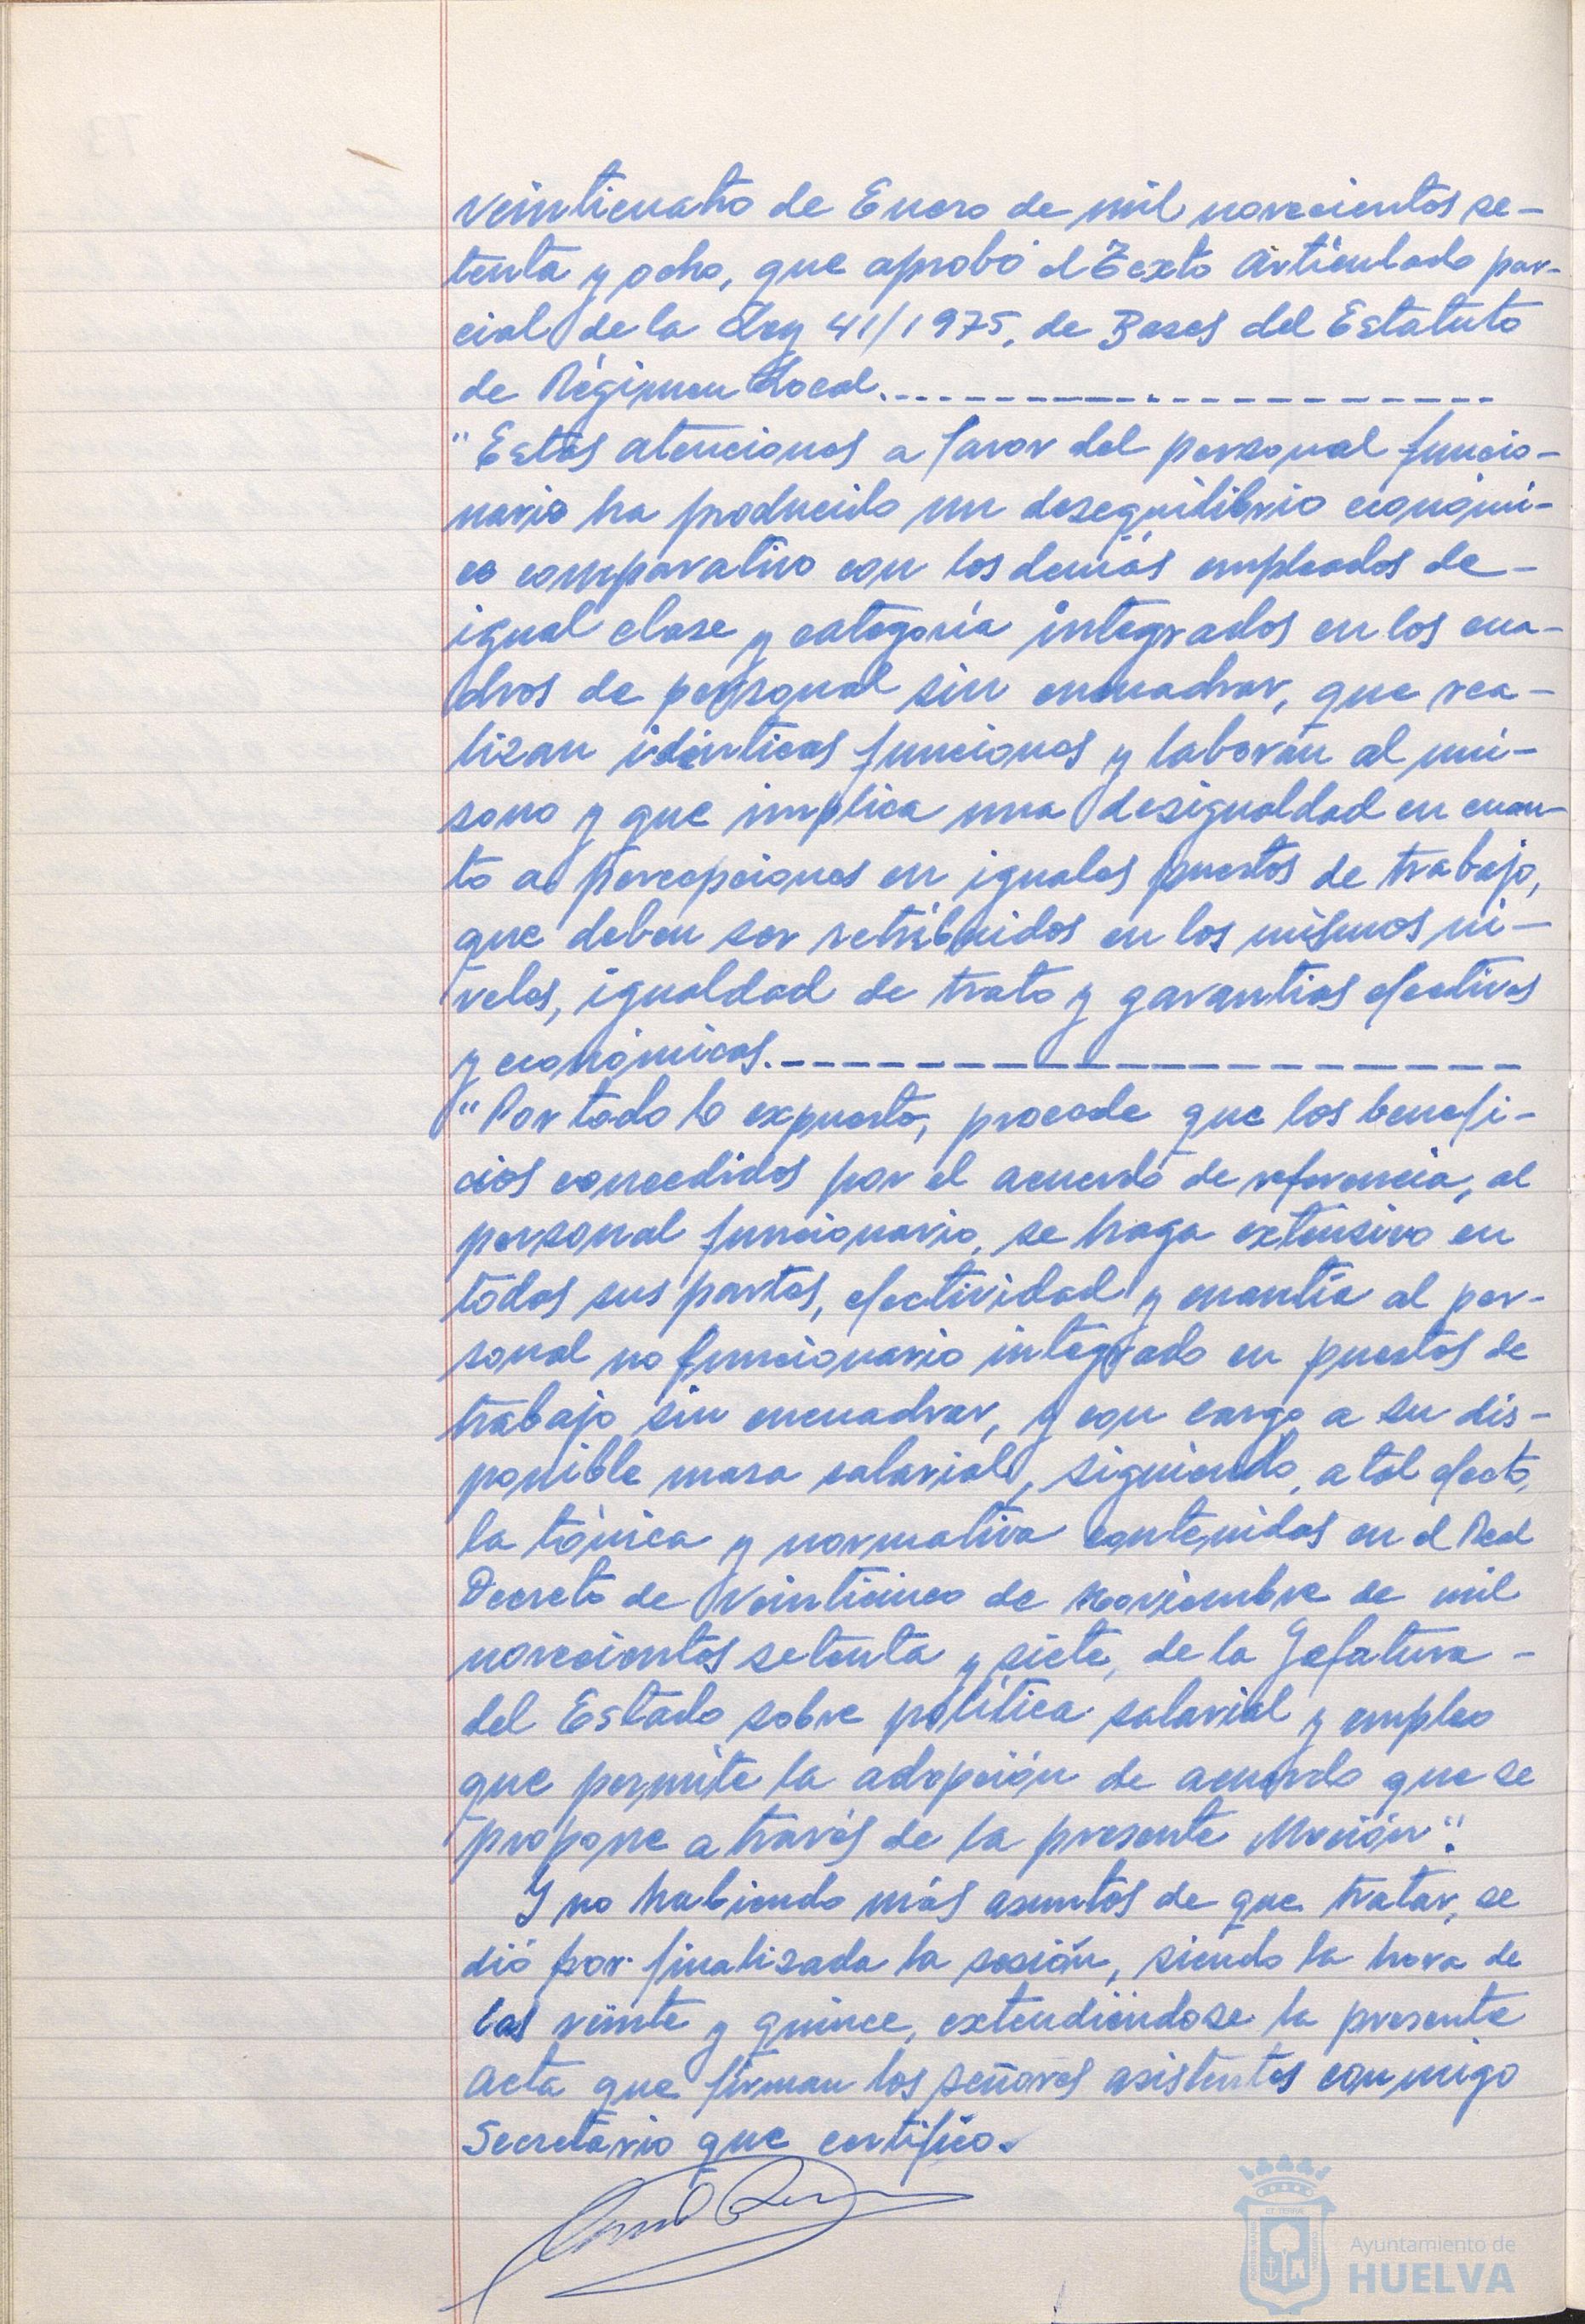 veinticuatro de Enero de mil novecientos se-
tenta y ocho, que aprobó el Texto Articulado par-
cial de la Ley 41/1975, de Bases del Estatuto
de Régimen Local.
"Estas atenciones a favor del personal funcio-
nario ha producido un desequilibrio económi-
co comparativo con los demás empleados de-
igual clase y categoría integrados en los cua-
dros de personal sin encuadrar, que rea-
lizan idénticas funciones y laboran al uní-
sono y que implica una desigualdad en cuan-
to a percepciones en iguales puestos de trabajo,
que deben ser retribuidos en los mismos ni-
veles, igualdad de trato y garantías efectivas
y económicas.
"Por todo lo expuesto, procede que los benefi-
cios concedidos por el acuerdo de referencia, al
personal funcionario, se haga extensivo en
todas sus partes, efectividad y cuantía al per-
sonal no funcionario integrado en puestos de
trabajo sin encuadrar, y con cargo a su dis-
ponible masa salarial, siguiendo, a tal efecto,
la tónica y normativa contenidas en el Real
Decreto de veinticinco de noviembre de mil
novecientos setenta y siete, de la Jefatura -
del Estado sobre política salarial y empleo
que permite la adopción de acuerdo que se
propone a través de la presente Moción".
Y no habiendo más asuntos de que tratar, se
dió por finalizada la sesión, siendo la hora de
las veinte y quince, extendiéndose la presente
acta que firman los señores asistentes conmigo
Secretario que certifico.
Ayuntamiento de
HUELVA